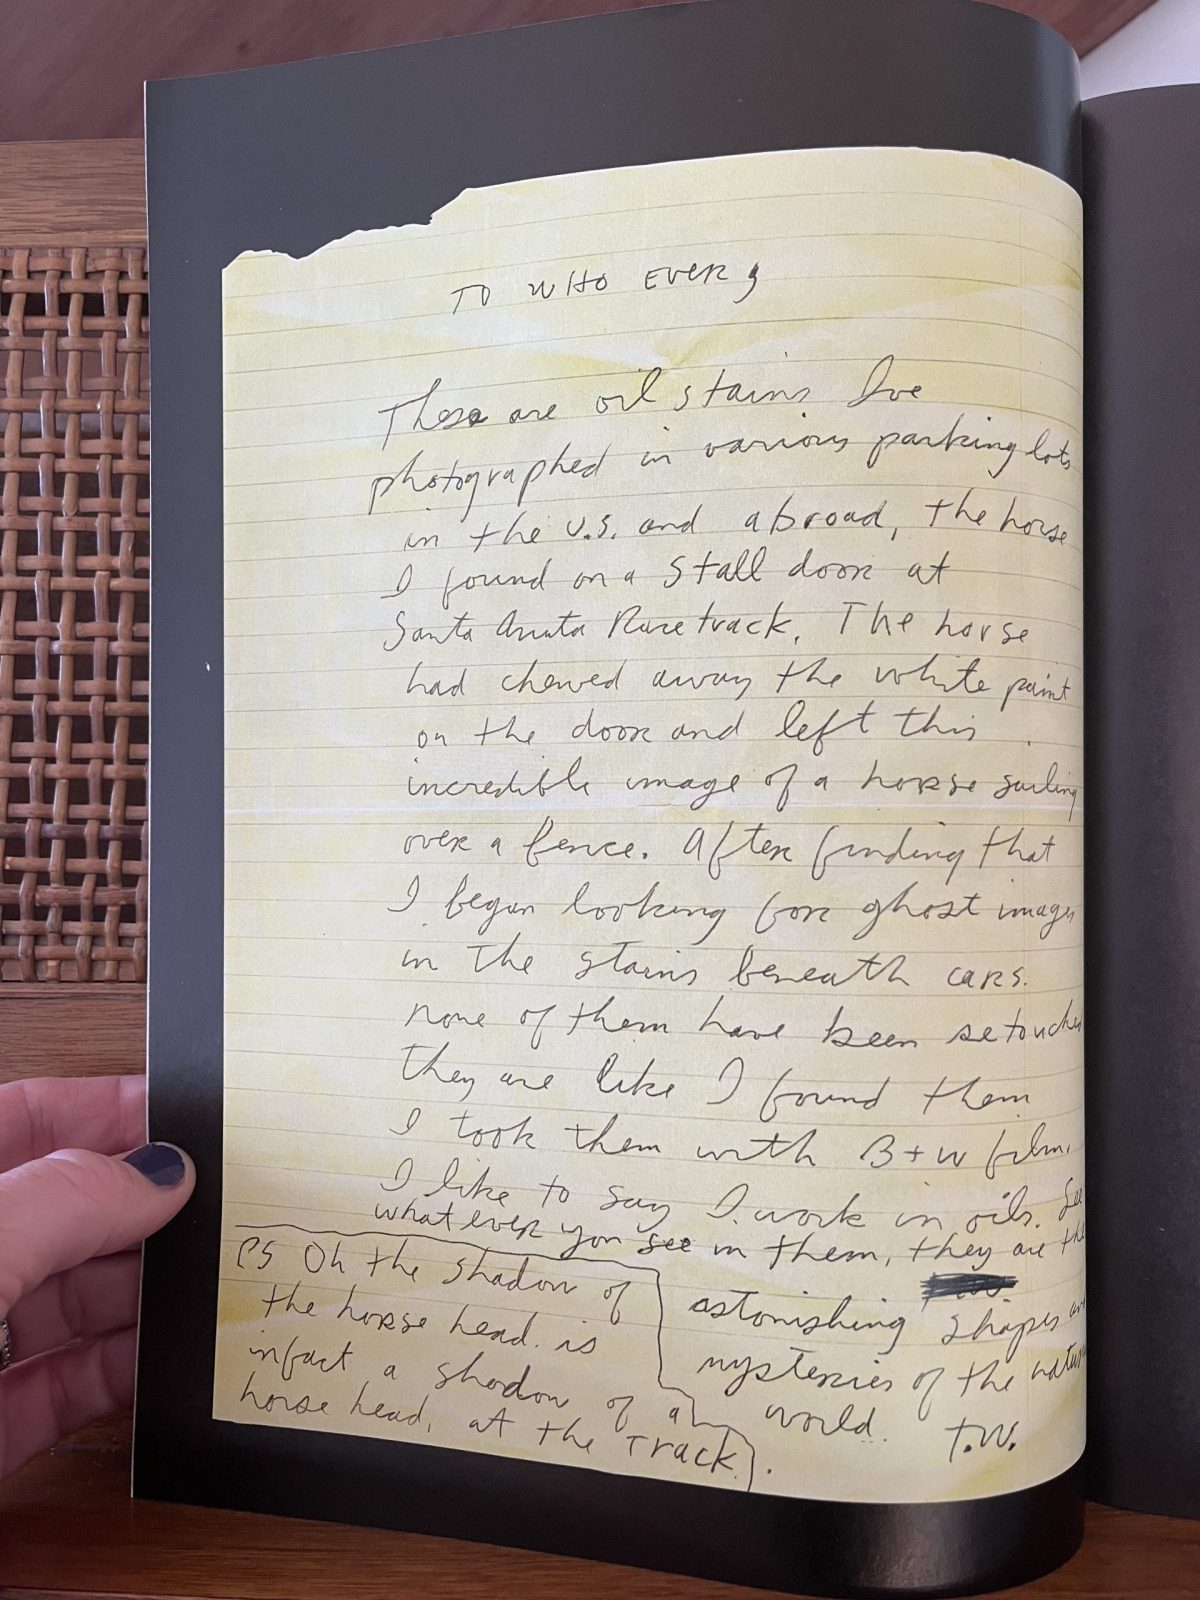 TO WHO EVER,
These are oil stains Ive
photographed in various parking lots
in the U.S. and abroad, the horse
I found on a stall door at
Santa Anita Racetrack. The horse
had chewed away the white paint
on the door and left this
incredible image of a horse sailing
over a fence. After finding that
I began looking for ghost images
in the stains beneath cars.
none of them have been retouched
they are like I found them
I took them with B+W film.
I like to say I work in oils. See
what ever you see in them, they are the
astonishing shapes and
mysteries of the natural
world. T.W.
PS Oh the shadow of
the horse head is
infact a shadow of a
horse head, at the Track.